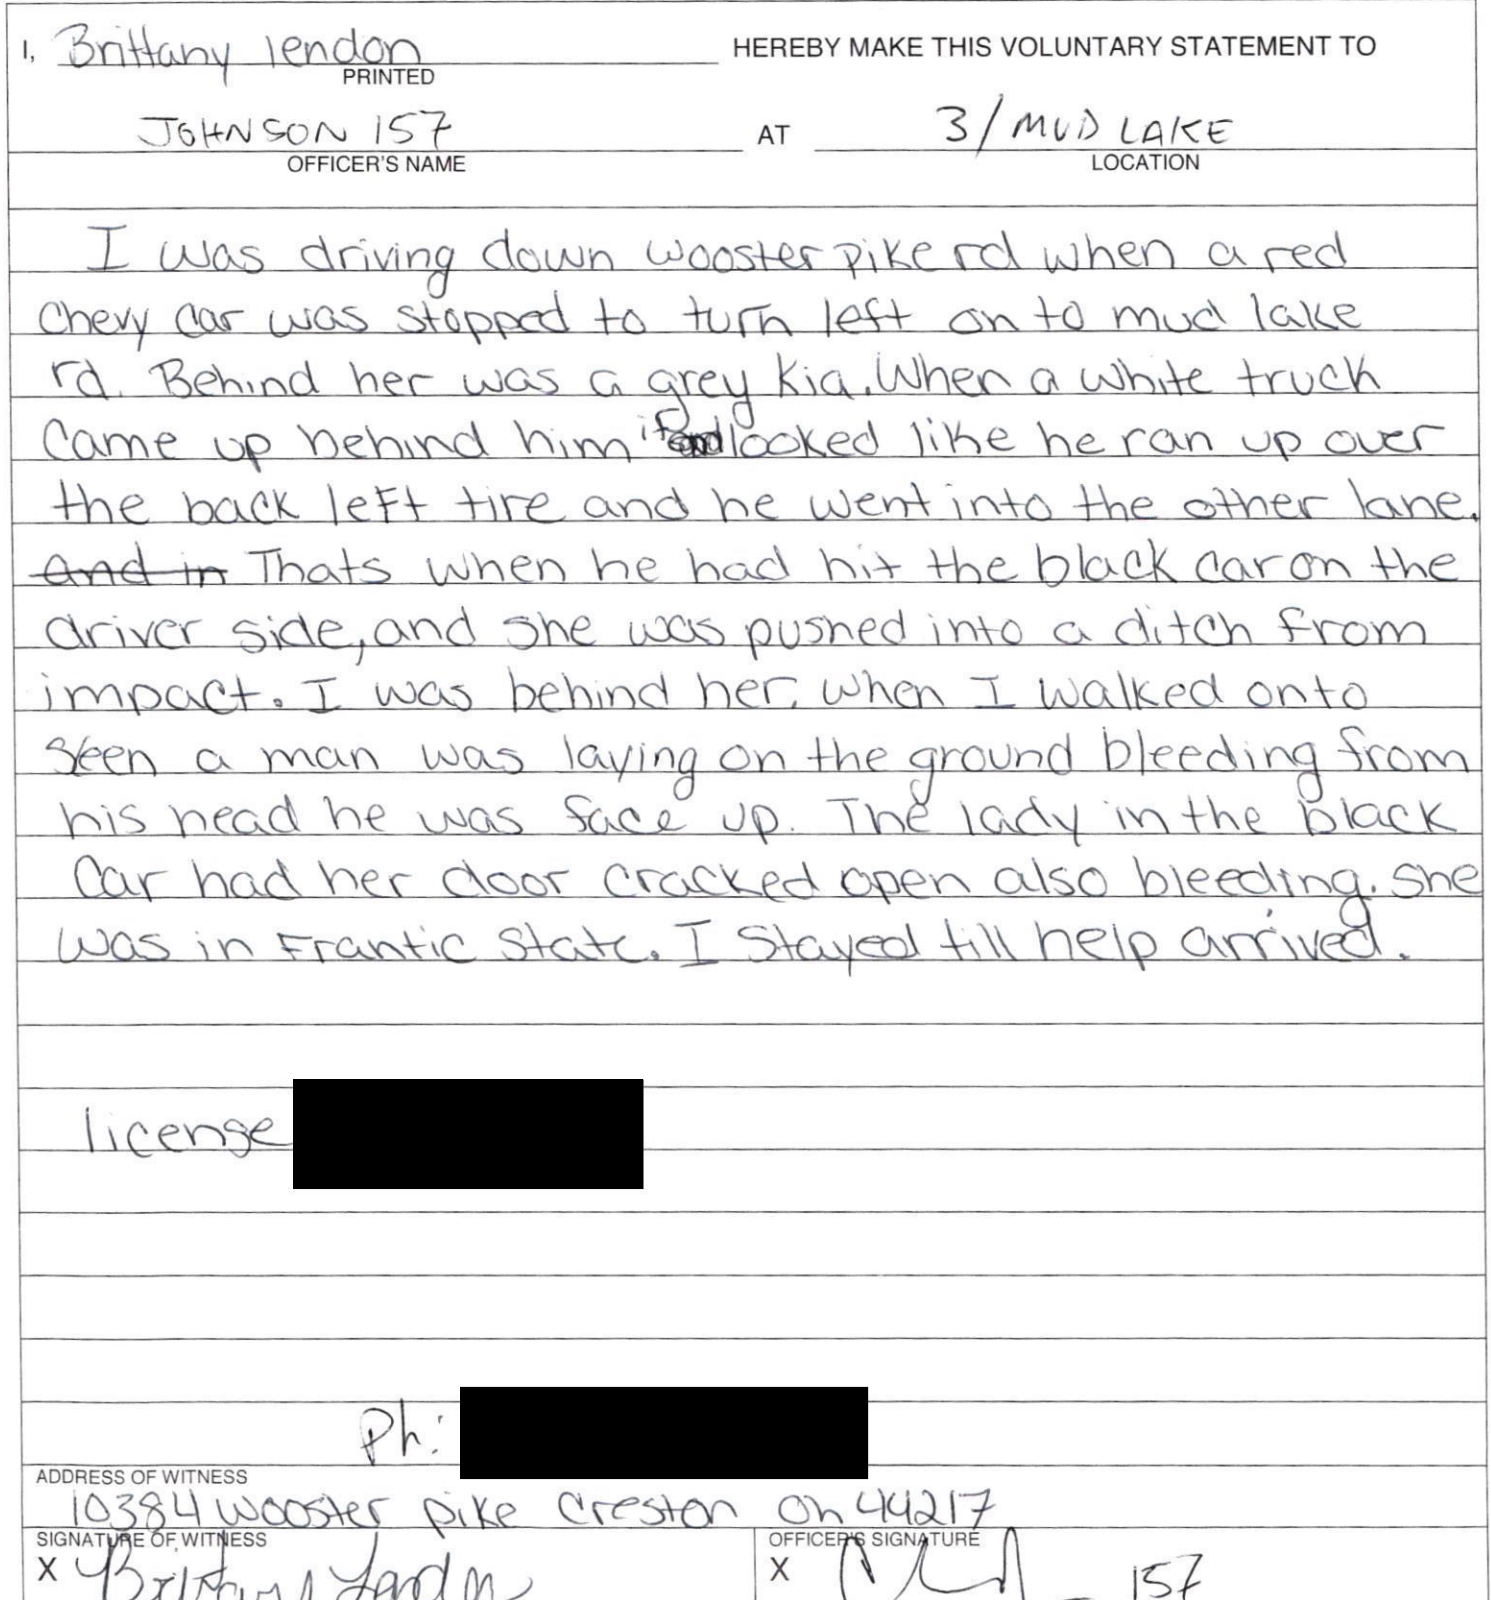 I, Brittany lendon HEREBY MAKE THIS VOLUNTARY STATEMENT TO
PRINTED
JOHNSON 157 AT 3/MUD LAKE
OFFICER'S NAME LOCATION
I was driving down wooster pike rd when a red
Chevy car was stopped to turn left on to mud lake
rd. Behind her was a grey Kia. When a white truck
Came up behind him it looked like he ran up over
the back left tire and he went into the other lane.
and in Thats when he had hit the black car on the
driver side, and she was pushed into a ditch from
impact. I was behind her. When I walked onto
seen a man was laying on the ground bleeding from
his head he was face up. The lady in the black
Car had her door cracked open also bleeding. She
was in Frantic State. I Stayed till help arrived.
license
Ph:
ADDRESS OF WITNESS
10384 wooster pike Creston Oh 44217
SIGNATURE OF WITNESS OFFICER'S SIGNATURE
X Brittany X 157